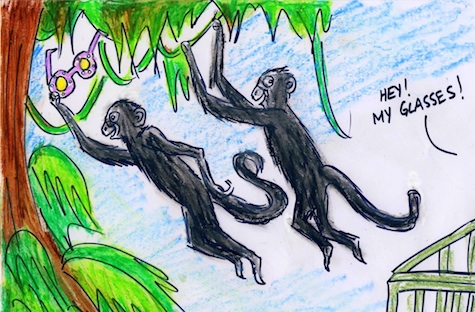 HEY!
MY GLASSES!